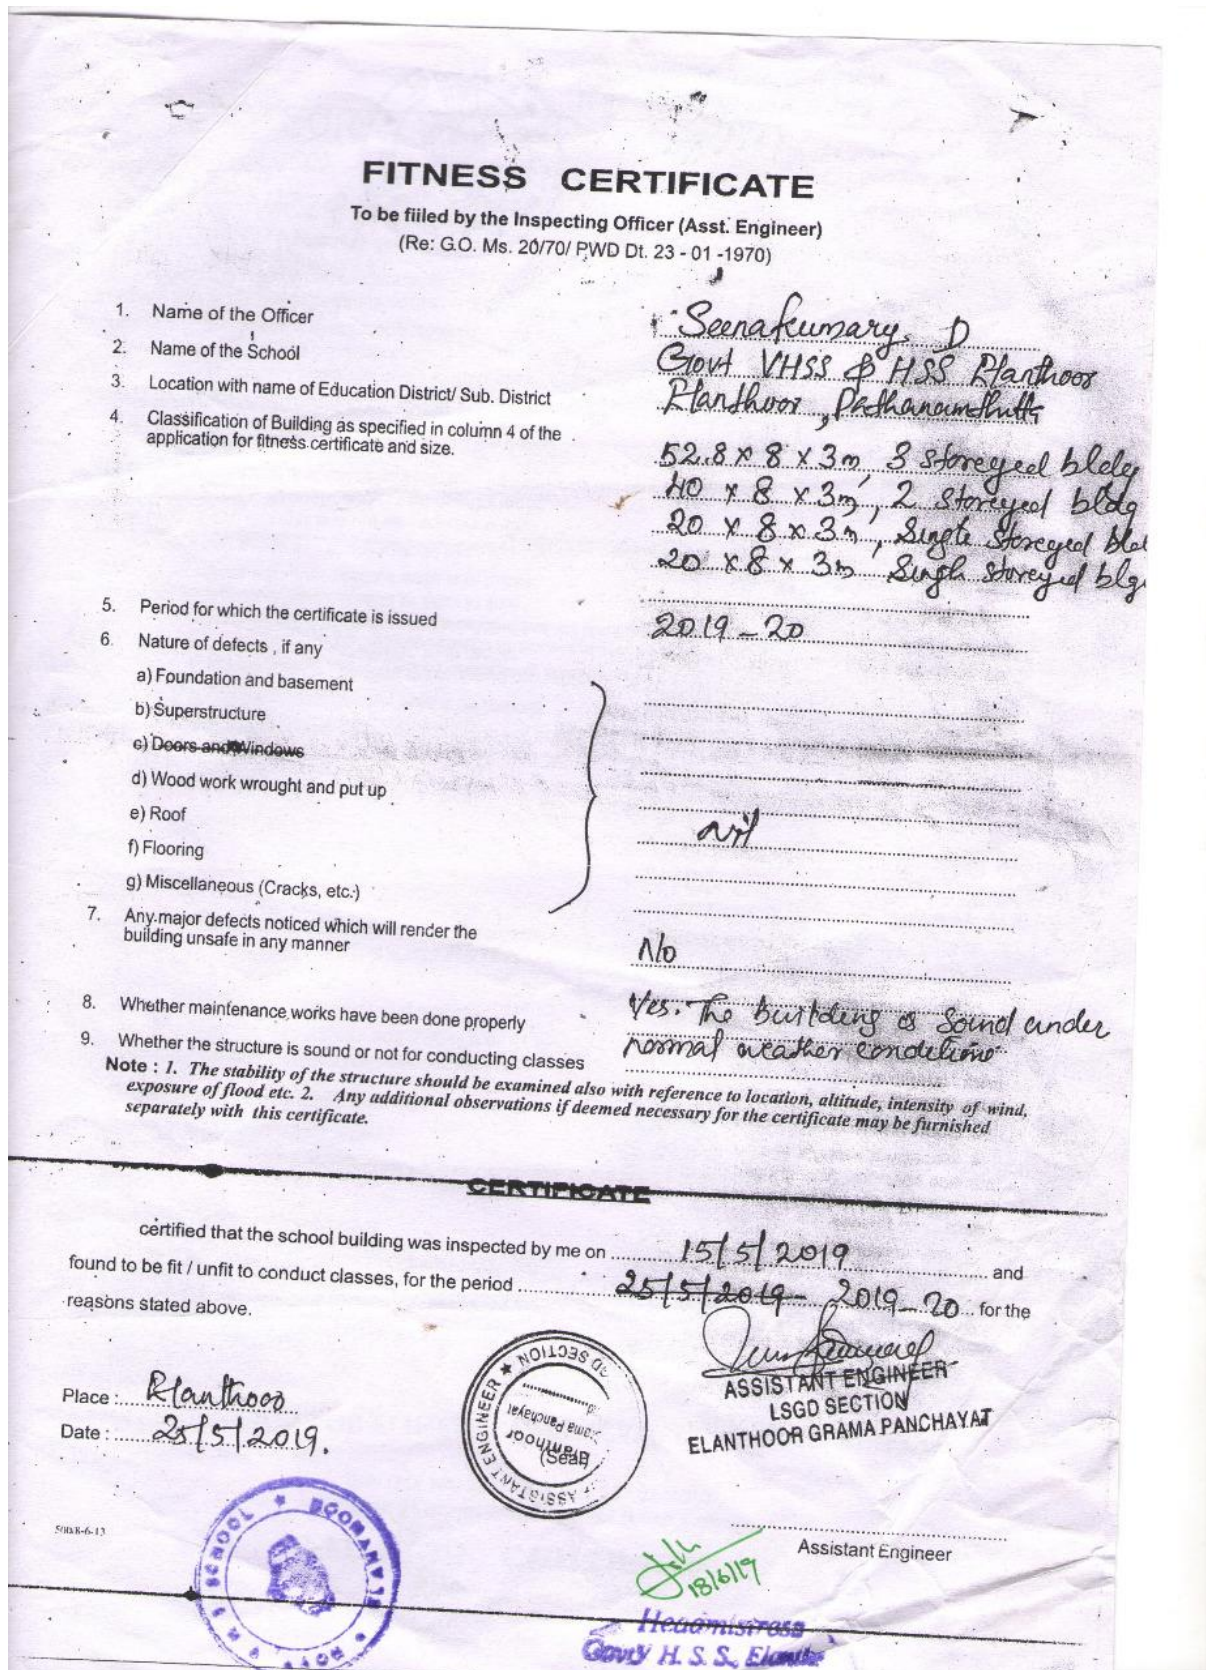 FITNESS CERTIFICATE
To be fiiled by the Inspecting Officer (Asst. Engineer)
(Re: G.O. Ms. 20/70/ PWD Dt. 23 - 01 -1970)
1. Name of the Officer Seenakumary. D
2. Name of the School Govt VHSS & HSS Elanthoor
3. Location with name of Education District/ Sub. District Elanthoor, Pathanamthitta
4. Classification of Building as specified in column 4 of the
application for fitness certificate and size.
52.8 x 8 x 3m, 3 storeyed bldg
40 x 8 x 3m, 2 storeyed bldg
20 x 8 x 3m, Single storeyed
20 x 8 x 3m storeyed blg
5. Period for which the certificate is issued 2019-20
6. Nature of defects , if any
a) Foundation and basement
b) Superstructure
c) Doors and Windows
d) Wood work wrought and put up
e) Roof nil
f) Flooring
g) Miscellaneous (Cracks, etc.)
7. Any major defects noticed which will render the
building unsafe in any manner No
8. Whether maintenance works have been done properly Yes. The building is Sound under
9. Whether the structure is sound or not for conducting classes normal weather conditions
Note : 1. The stability of the structure should be examined also with reference to location, altitude, intensity of wind,
exposure of flood etc. 2. Any additional observations if deemed necessary for the certificate may be furnished
separately with this certificate.
CERTIFICATE
certified that the school building was inspected by me on 15/5/2019 and
found to be fit / unfit to conduct classes, for the period 25/5/2019- 2019-20 for the
reasons stated above.
ASSISTANT ENGINEER
LSGD SECTION
ELANTHOOR GRAMA PANCHAYAT
Place : Elanthoor
Date : 25/5/2019.
ASSISTANT ENGINEER SECTION
Elanthoor
Grama Panchayat
(Seal)
Assistant Engineer
18/6/19
SCHOOL
Headmistress
H. S. S.